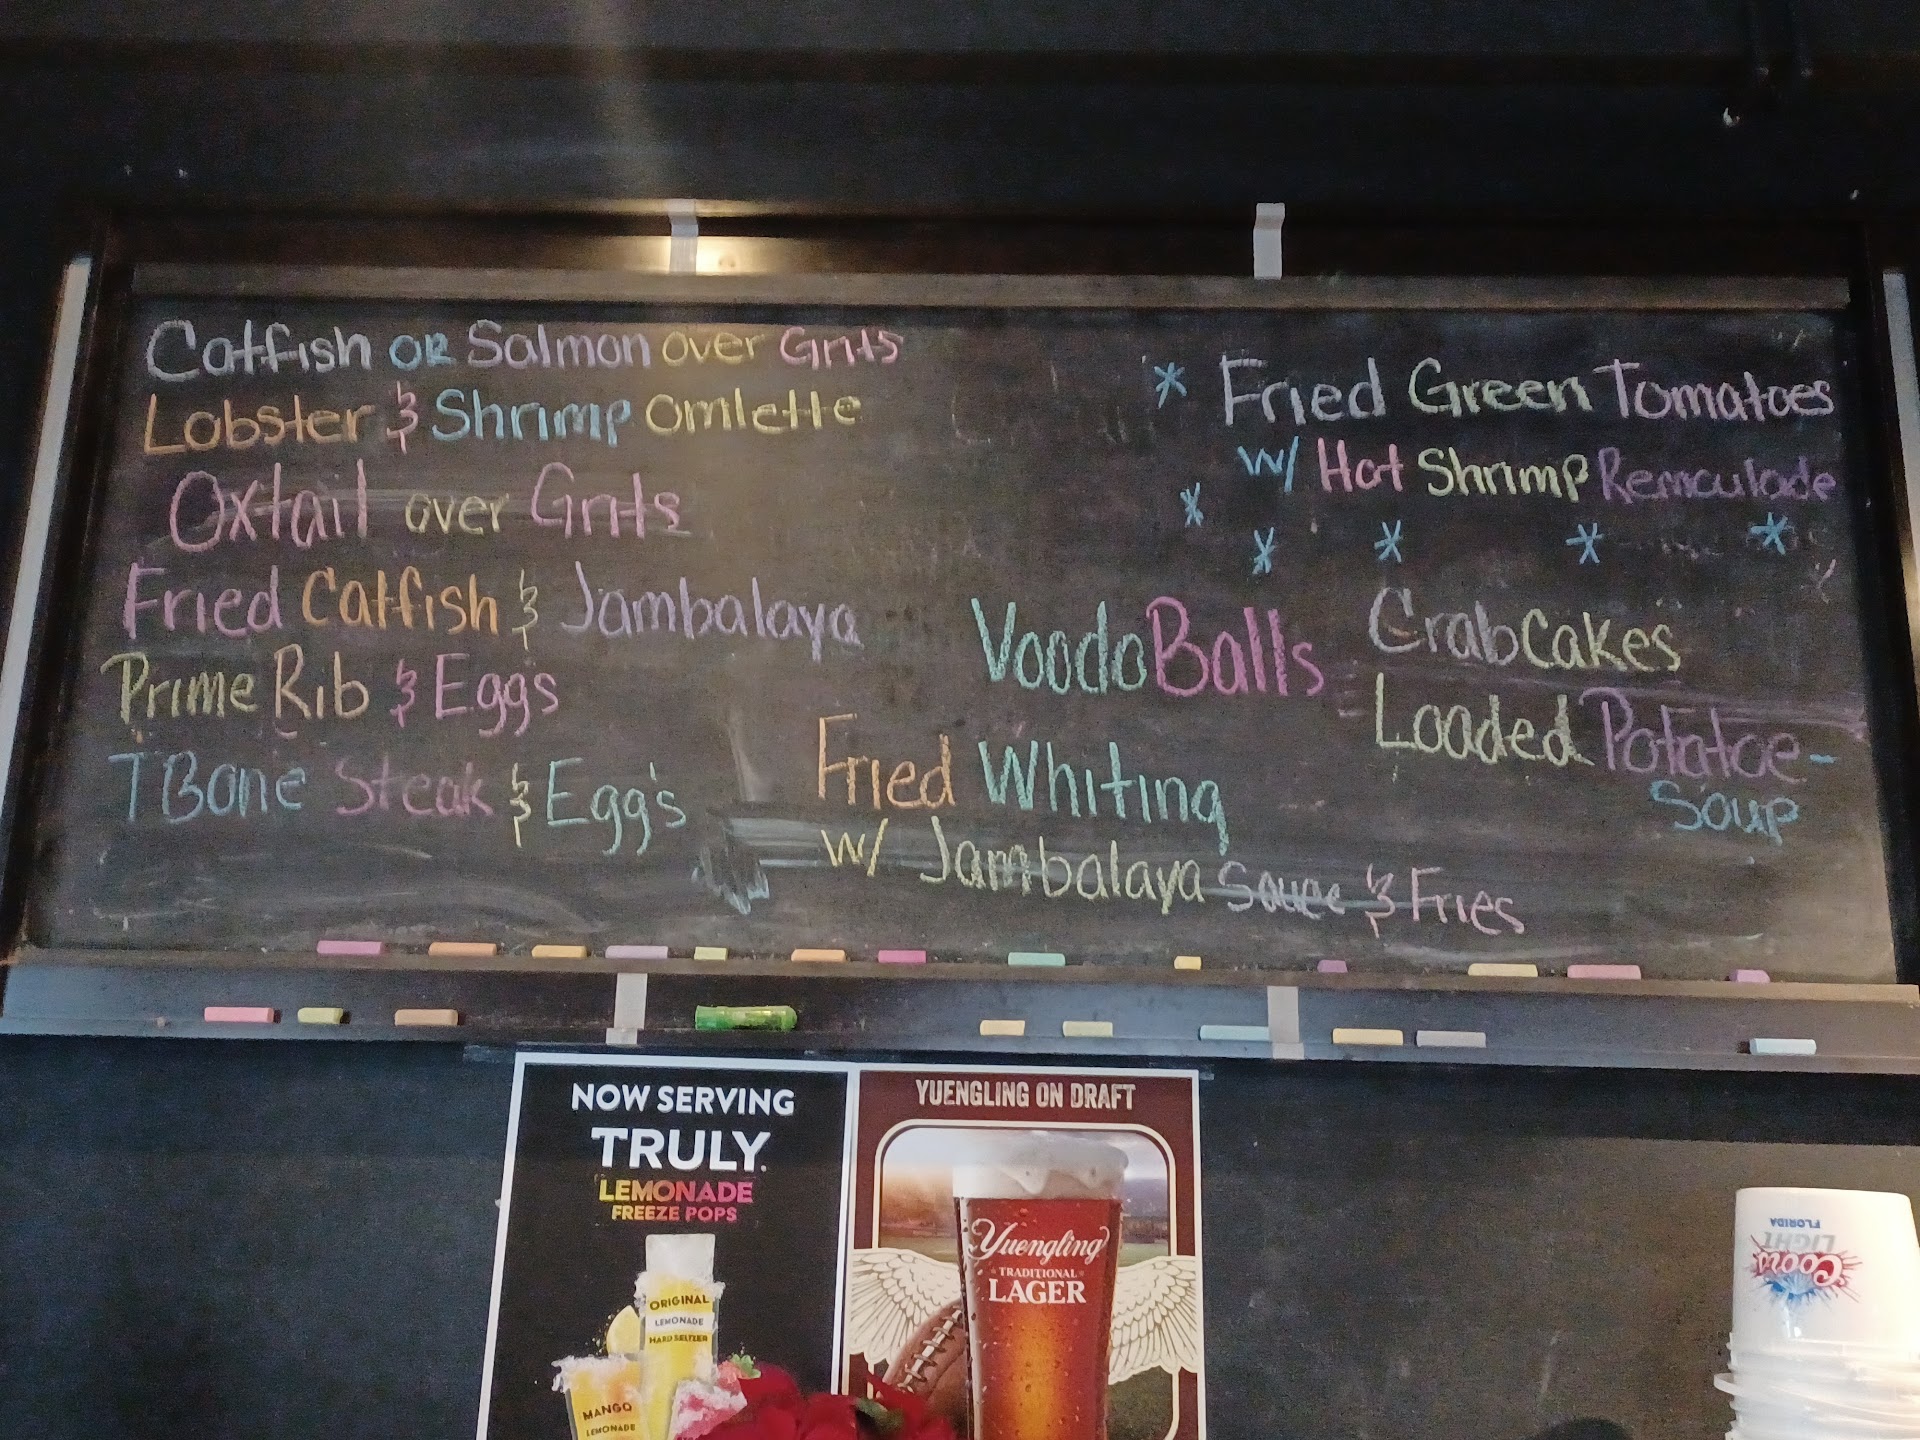 Catfish OR Salmon over Grits
Lobster & Shrimp Omlette
Oxtail over Grits
Fried Catfish & Jambalaya
Prime Rib & Eggs
T Bone Steak & Egg's
* Fried Green Tomatoes
w/ Hot Shrimp Remoulade
* * * * *
Voodo Balls
Crab Cakes
Loaded Potatoe-
Soup
Fried Whiting
w/ Jambalaya Sauce & Fries
NOW SERVING
TRULY.
LEMONADE
FREEZE POPS
ORIGINAL
LEMONADE
HARD SELTZER
MANGO
LEMONADE
YUENGLING ON DRAFT
Yuengling
TRADITIONAL
LAGER
Coors
LIGHT
FLORIDA